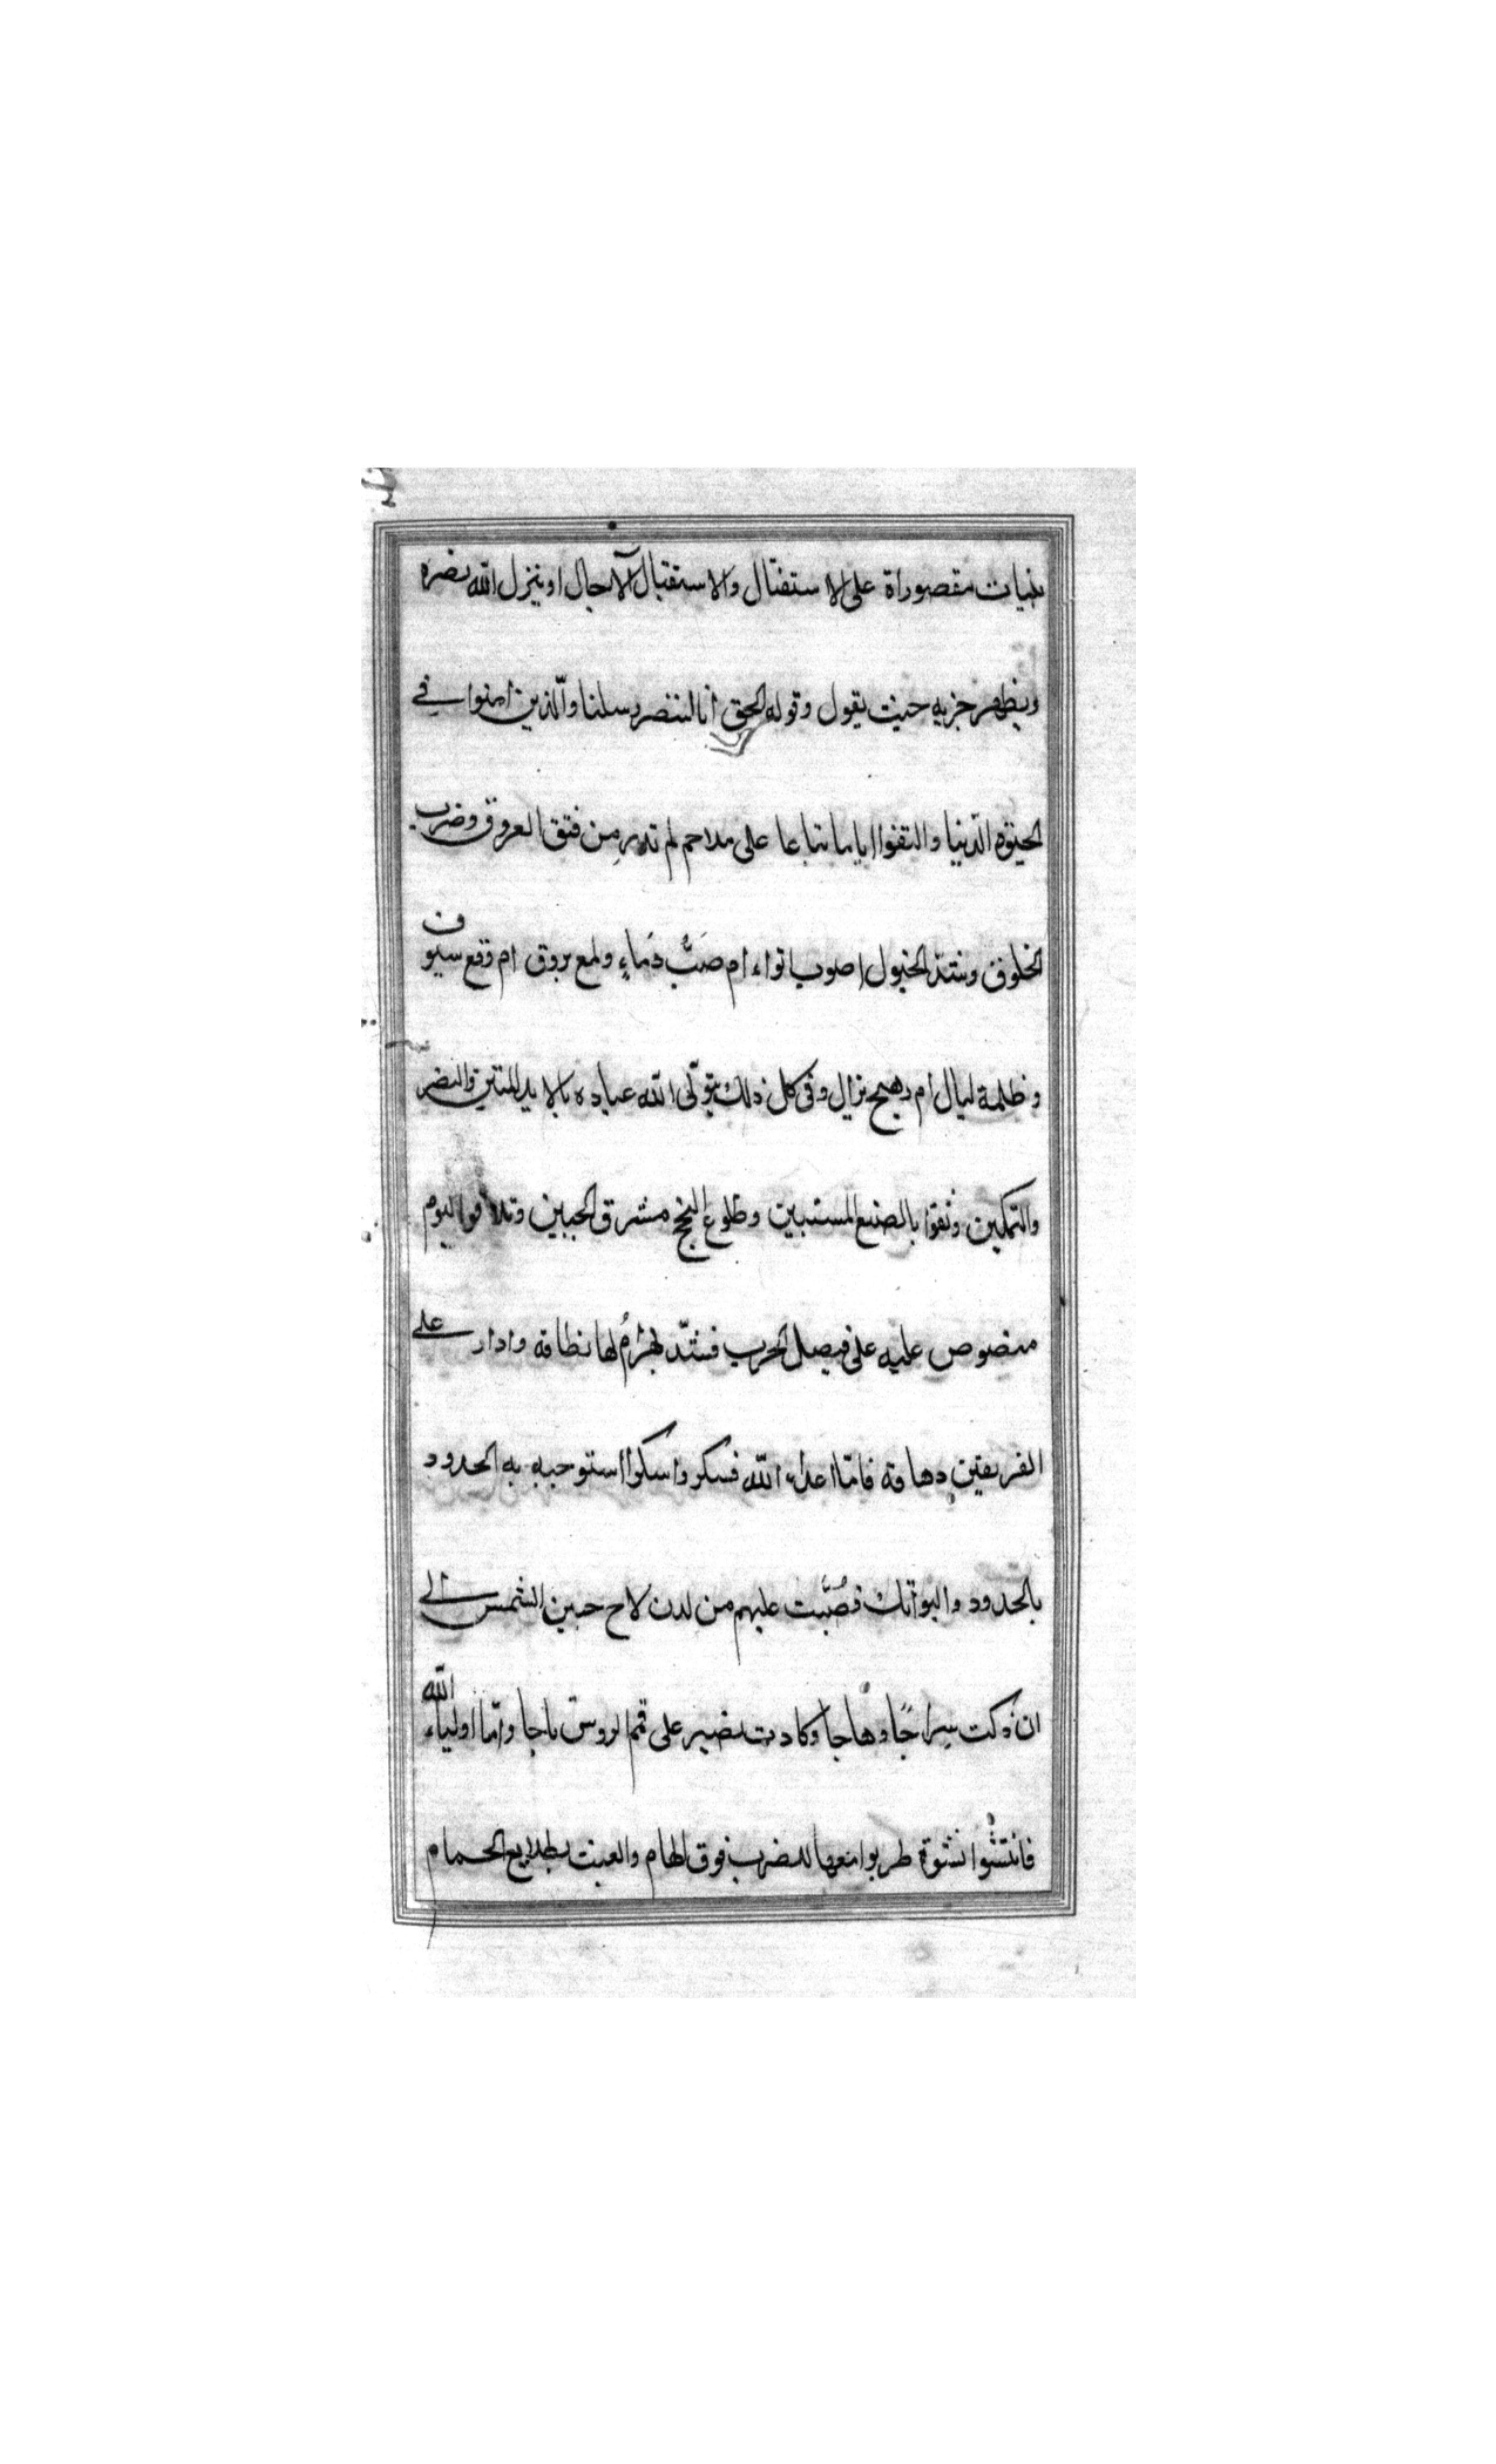 بنيات مقصوراة على الاستقتال والاستقبال الآجال او ينزل الله نصره
ويظهر حزبه حيث يقول وقوله الحق انا لننصر رسلنا والّذين امنوا في
الحيوة الدّنيا والتقوا اياما تباعا على ملاحم لم تدر من فتق العروق وضرب
الخلوق وشدّ الخيول اصوب انواء ام صَبُّ دماءٍ ولمع بروق ام وقع سيوف
وظلمة ليال ام رهج نزال وفى كل ذلك يتولّى الله عباده بالايد المتين والنصر
والتمكين وثقوا بالصنع المستبين وطلوع النجح مشرق الجبين وتلاقوا ليوم
منصوص عليه على فيصل الحرب فشدّ بهرامُ لها نطاقه وادار على
الفريقين دهاقه فامّا اعداء الله فسكروا سكرا استوجبه به الحدود
بالحدود والبواتك فصُبّت عليهم من لدن لاح جبين الشمس الى
ان ذكت سراجًا وهاجا وكادت تصير على قمم الروس تاجا وامّا اولياء الله
فانتشوا نشوة طربوا معها للضرب فوق الهام والعبث بطلايع الحمام